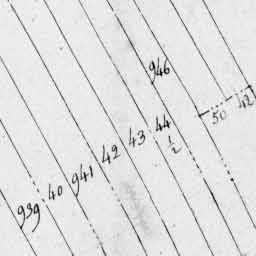 946
50 42
939 40 941 42 43 44
1/2